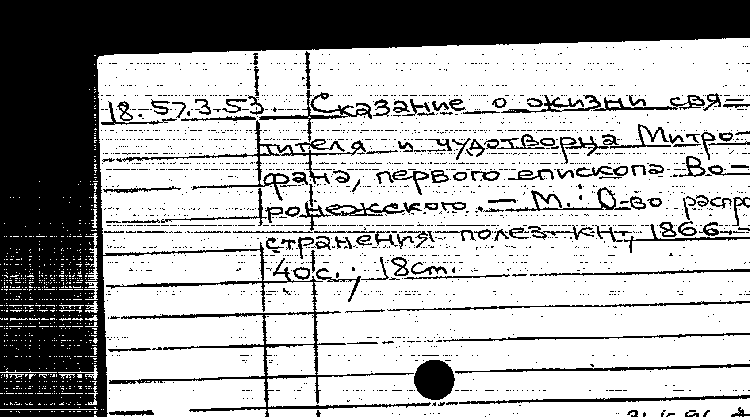 18.57.3.53. Сказание о жизни свя=
тителя и чудотворца Митро-
фана, первого епископа Во-
ронежского. — М.: О-во распро
странения полез. кн., 1866. -
40с.; 18см.